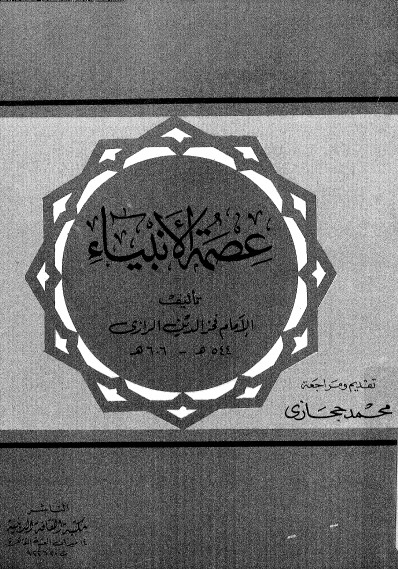 عصمة الأنبياء
تأليف
الإمام فخر الدين الرازي
٥٤٤ هـ - ٦٠٦ هـ
تقديم ومراجعة
محمد حجازي
الناشر
مكتبة الثقافة الدينية